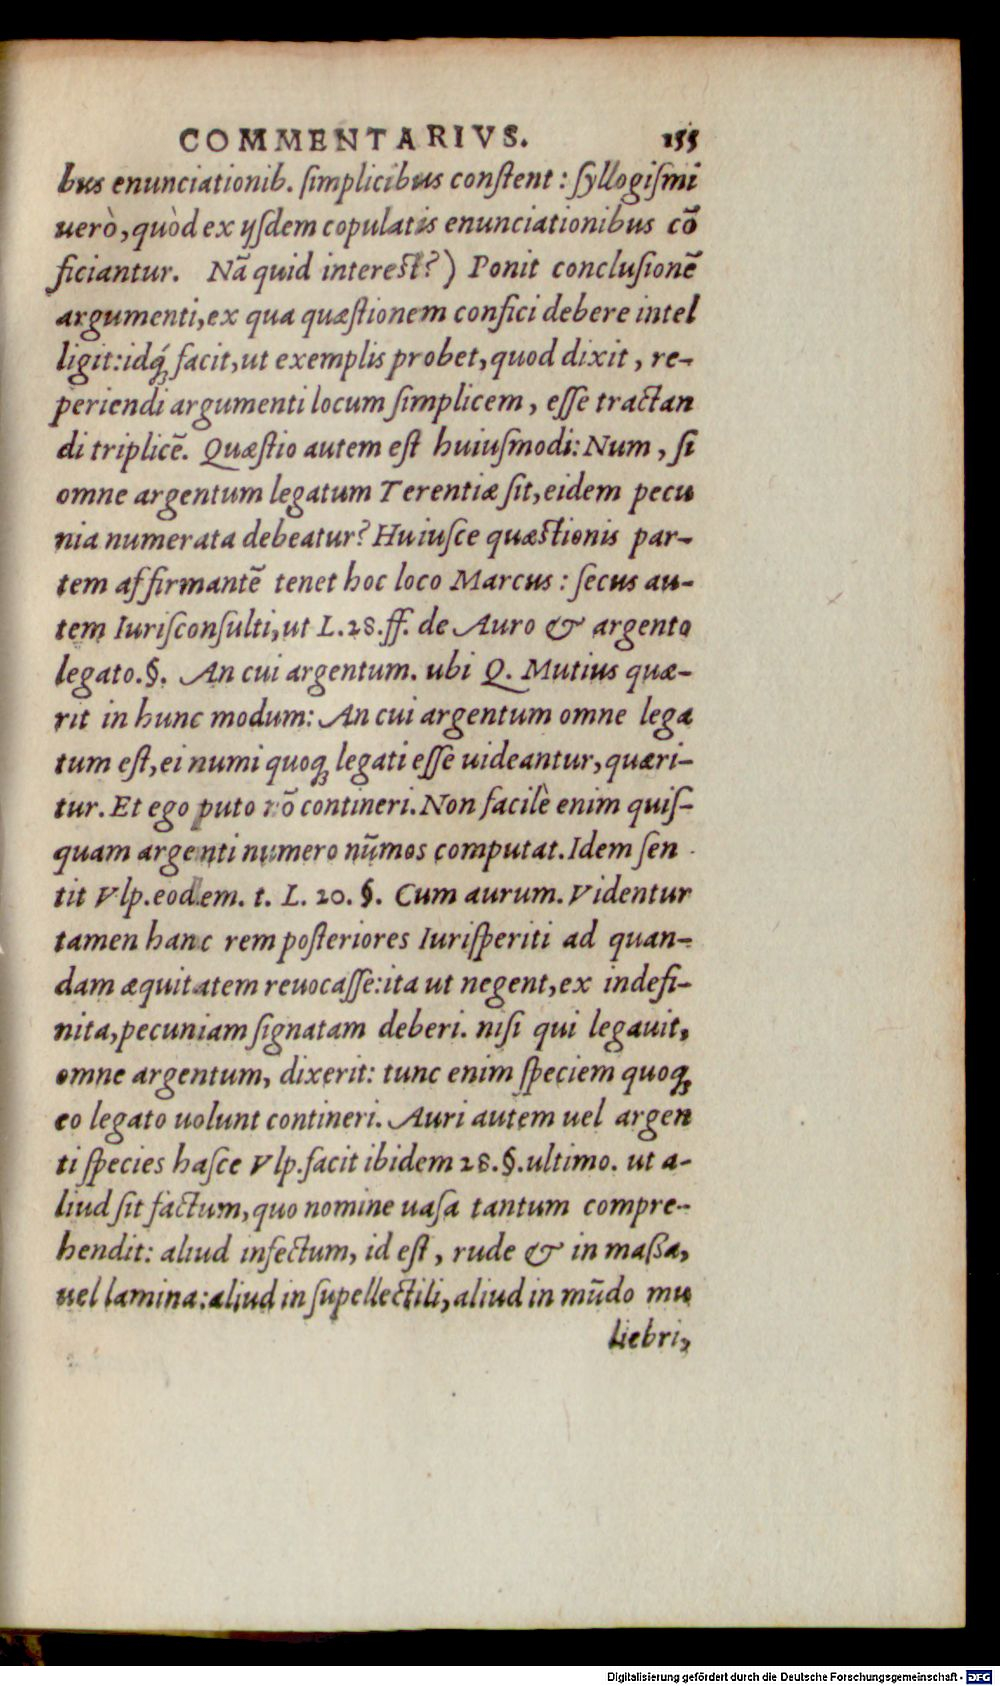 COMMENTARIVS. 155
bus enunciationib. ſimplicibus conſtent : ſyllogiſmi
uerò, quòd ex ijſdem copulatis enunciationibus cō
ficiantur. Nā quid intereſt?) Ponit concluſionē
argumenti, ex qua quæſtionem confici debere intel
ligit: idq́ꝫ facit, ut exemplis probet, quod dixit, re-
periendi argumenti locum ſimplicem, eſſe tractan
di triplicē. Quæſtio autem eſt huiuſmodi: Num, ſi
omne argentum legatum Terentiæ ſit, eidem pecu
nia numerata debeatur? Huiuſce quæſtionis par-
tem affirmantē tenet hoc loco Marcus : ſecus au-
tem Iuriſconſulti, ut L. 28. ff. de Auro & argento
legato. §. An cui argentum. ubi Q. Mutius quæ-
rit in hunc modum: An cui argentum omne lega
tum eſt, ei numi quoqꝫ legati eſſe uideantur, quæri-
tur. Et ego puto nō contineri. Non facilè enim quiſ-
quam argenti numero nūmos computat. Idem ſen
tit Vlp. eodem. t. L. 20. §. Cum aurum. Videntur
tamen hanc rem poſteriores Iuriſperiti ad quan-
dam æquitatem reuocaſſe: ita ut negent, ex indefi-
nita, pecuniam ſignatam deberi. niſi qui legauit,
omne argentum, dixerit: tunc enim ſpeciem quoqꝫ
eo legato uolunt contineri. Auri autem uel argen
ti ſpecies haſce Vlp. facit ibidem 28. §. ultimo. ut a-
liud ſit factum, quo nomine uaſa tantum compre-
hendit: aliud infectum, id eſt, rude & in maßa,
uel lamina: aliud in ſupellectili, aliud in mūdo mu
liebri,
Digitalisierung gefördert durch die Deutsche Forschungsgemeinschaft - DFG